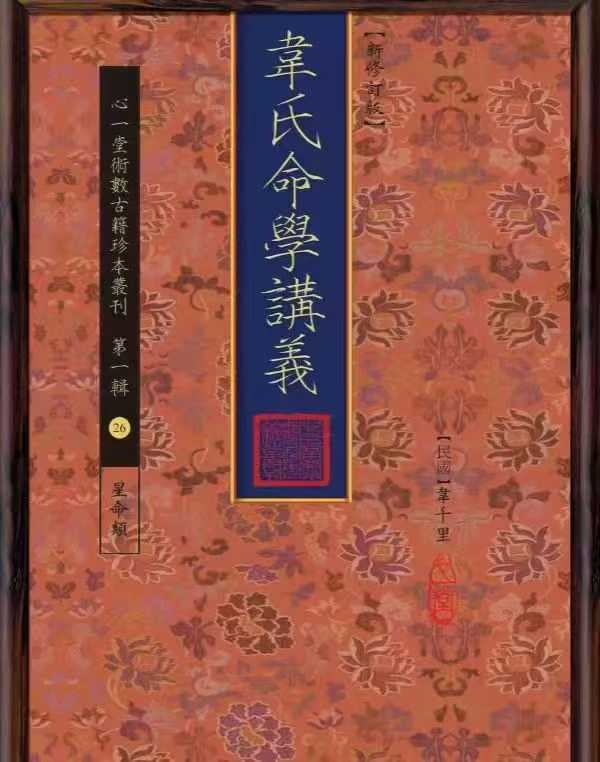 【新修訂版】
韋氏命學講義
【民國】韋千里
心一堂術數古籍珍本叢刊 第一輯
26
星命類